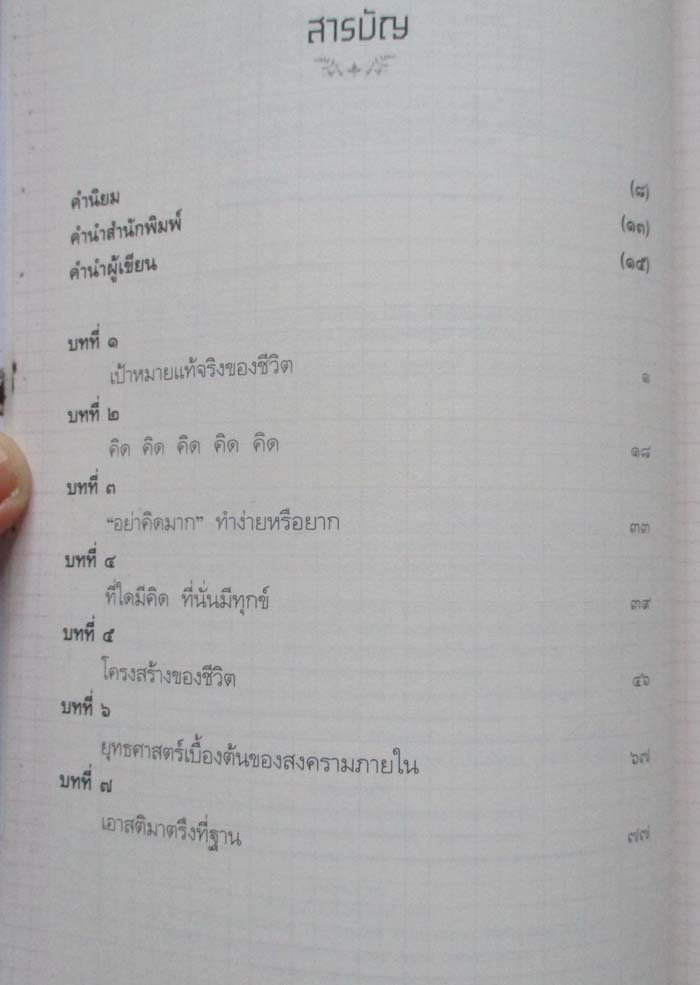 สารบัญ
คำนิยม (๘)
คำนำสำนักพิมพ์ (๑๓)
คำนำผู้เขียน (๑๕)
บทที่ ๑
เป้าหมายแท้จริงของชีวิต ๑
บทที่ ๒
คิด คิด คิด คิด คิด ๑๘
บทที่ ๓
“อย่าคิดมาก” ทำง่ายหรือยาก ๓๓
บทที่ ๔
ที่ใดมีคิด ที่นั่นมีทุกข์ ๓๙
บทที่ ๕
โครงสร้างของชีวิต ๔๖
บทที่ ๖
ยุทธศาสตร์เบื้องต้นของสงครามภายใน ๖๗
บทที่ ๗
เอาสติมาตรึงที่ฐาน ๗๗